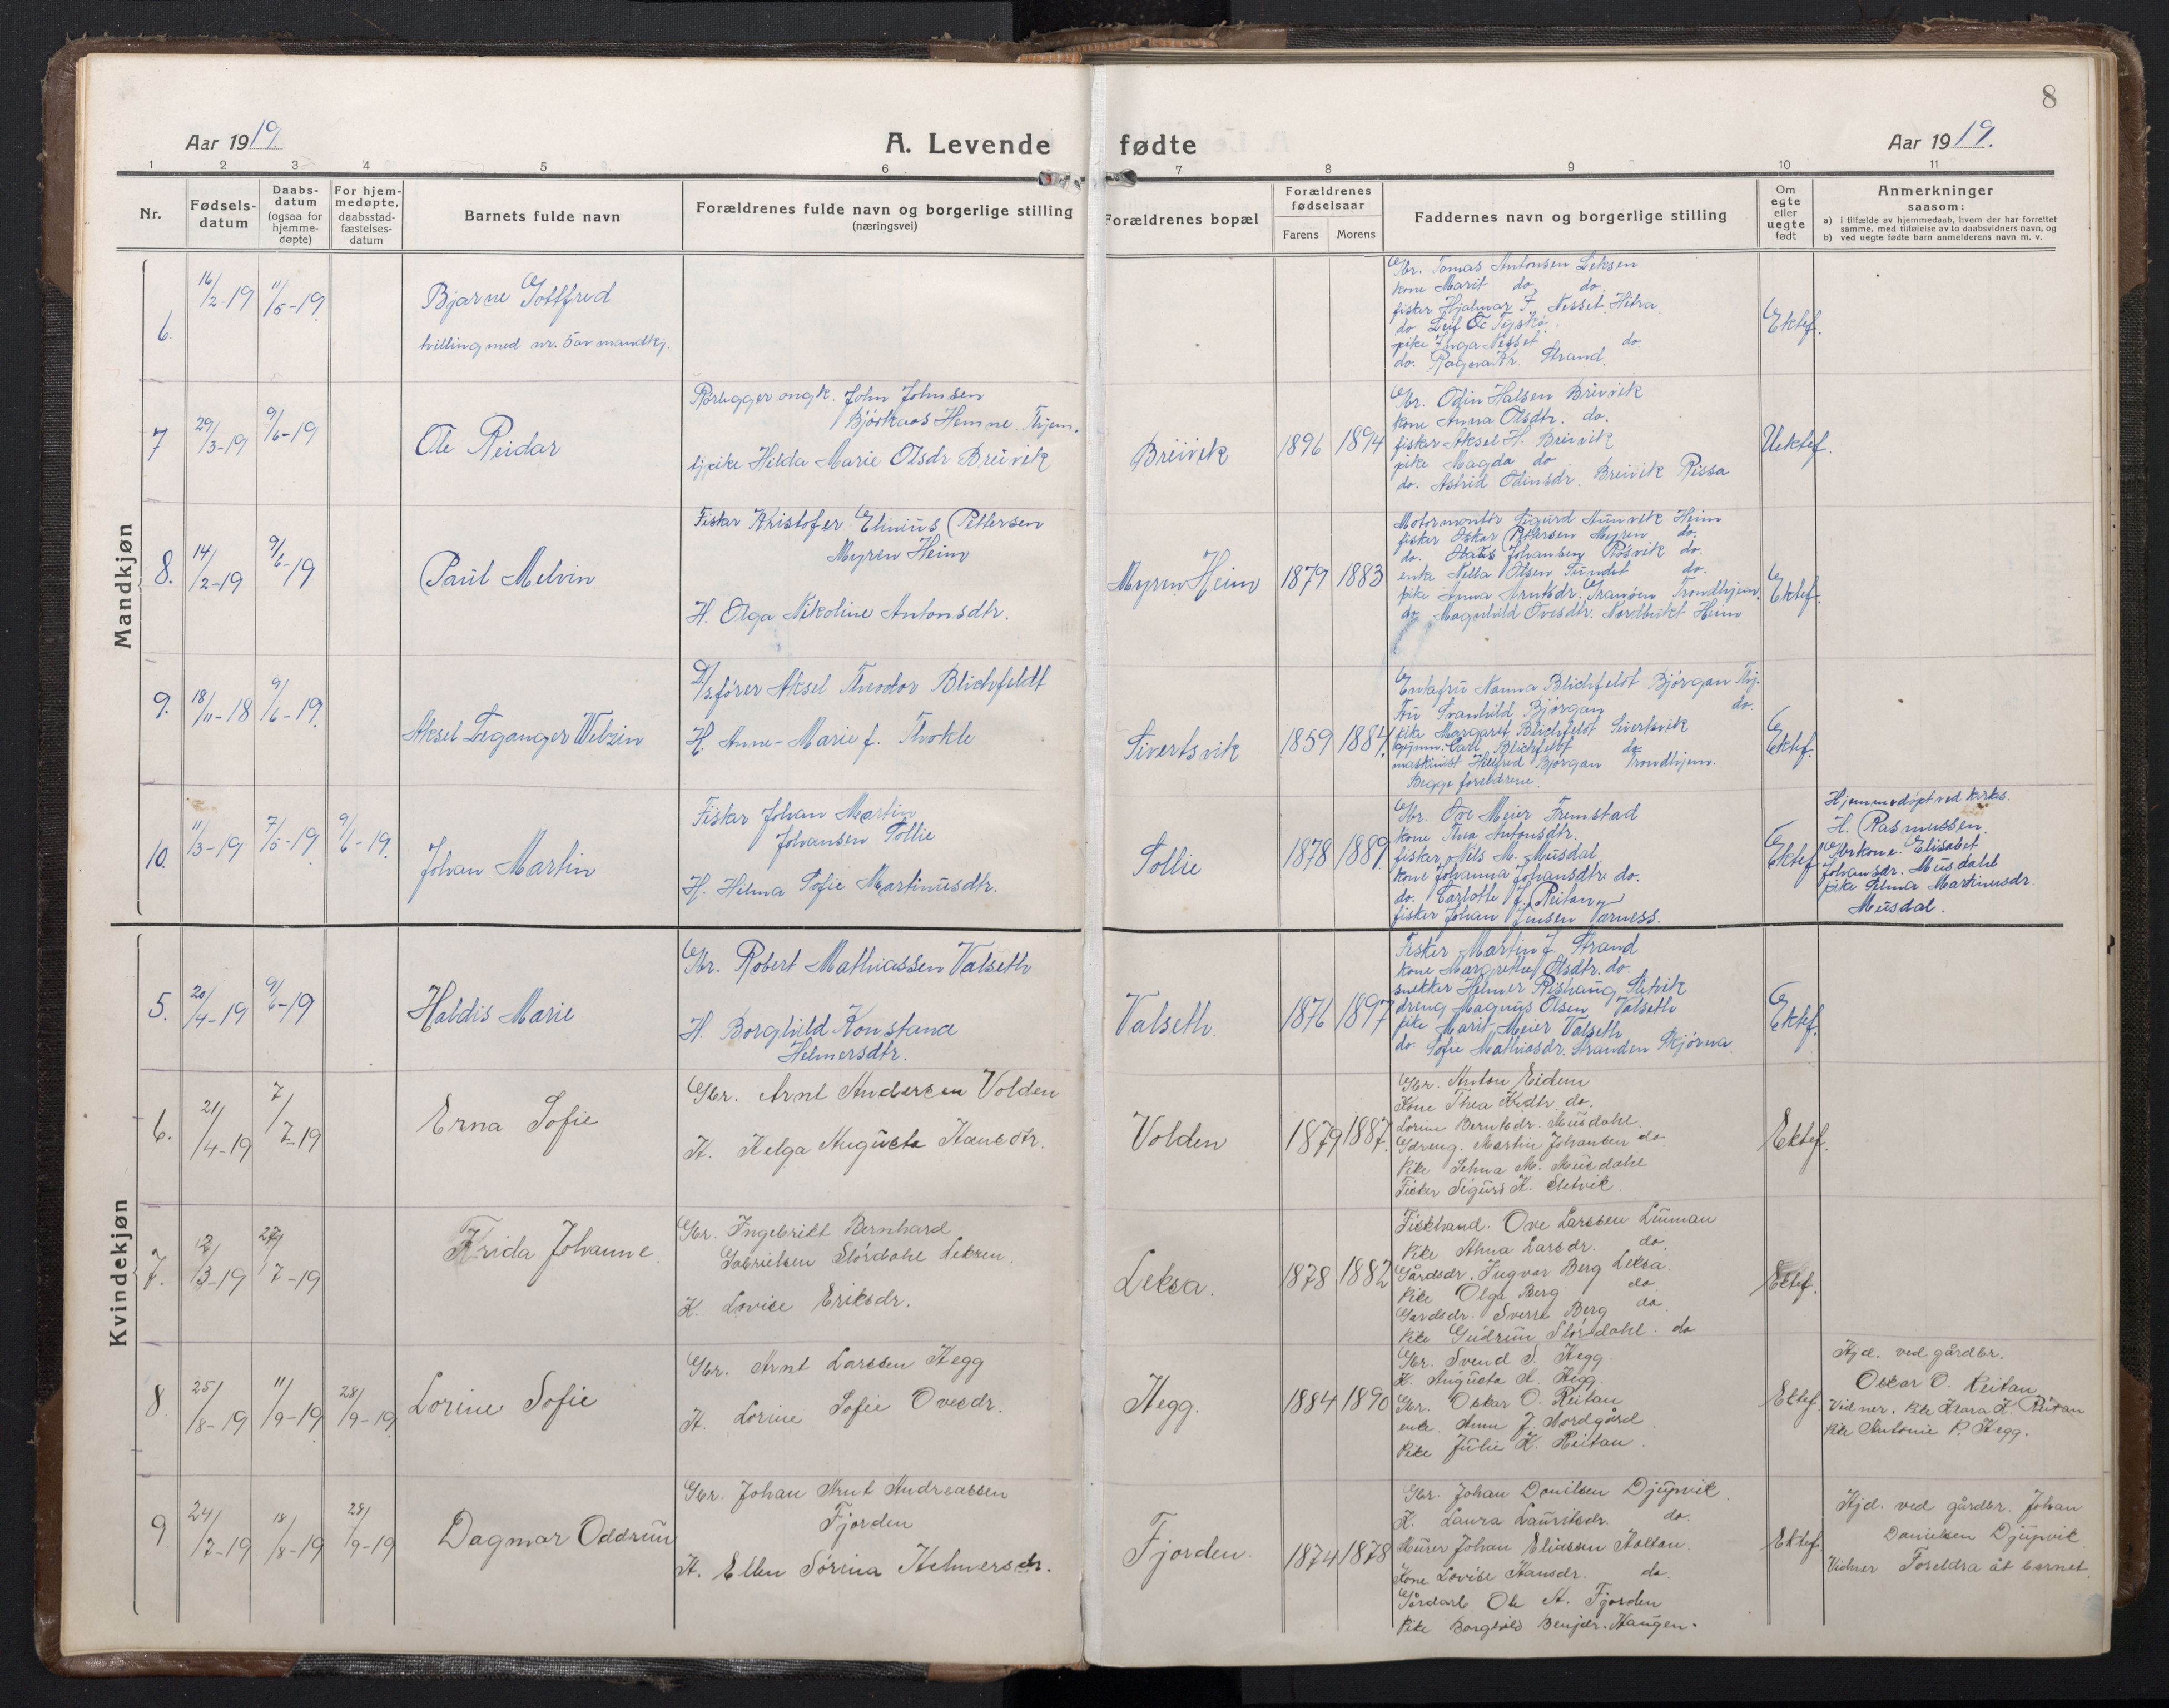 8
Aar 1919.
A. Levende fødte
Aar 1919.
1 2 3 4 5 6 7 8 9 10 11
Nr.
Fødsels-
datum
Daabs-
datum
(ogsaa for
hjemme-
døpte)
For hjem-
medøpte,
daabsstad-
fæstelses-
datum
Barnets fulde navn
Forældrenes fulde navn og borgerlige stilling
(næringsvei)
Forældrenes bopæl
Forældrenes
fødselsaar
Farens Morens
Faddernes navn og borgerlige stilling
Om
egte
eller
uegte
født
Anmerkninger
saasom:
a) i tilfælde av hjemmedaab, hvem der har forrettet
samme, med tilføielse av to daabsvidners navn, og
b) ved uegte fødte barn anmelderens navn m. v.
Mandkjøn
6.
16/2-19
11/5-19
Bjarne Gottfred
tvilling med nr. 5 av mandkj.
Gbr. Tomas Antonsen Leksen
kone Marit do. do.
fisker Hjalmar F. Nesset Hitra
do Leif
pike Inga Nesset do.
do. Ragna Kr. Strand
Ektef.
7
29/3-19
9/6-19
Ole Reidar
Rørlegger ongk. John Johnsen
Bjørkaas Hemne. Thjem.
tj.pike Hilda Marie Olsdr Breivik
Breivik
1896 1894
Gbr. Odin Halsen Breivik
kone Anna Olsdtr. do.
fisker Aksel H. Breivik
pike Magda do
do. Astrid Odinsdr. Breivik Rissa
Uektef.
8.
14/2-19
9/6-19
Paul Melvin
Fisker Kristofer Elinius Pettersen
Myren Heim
H. Olga Nikoline Antonsdtr.
Myren Heim
1879 1883
Motormontør Sigurd Aunvik Heim
fisker Oskar Pettersen Myren do.
do. Johansen Røsvik do.
enke Nella Olsen Sundet do.
pike Anna Arntsdr. Tranøen Trondhjem.
do Magnhild Ovesdtr. Nordbukt Heim
Ektef.
9.
18/11-18
9/6-19
Aksel Leganger Welzin
D/s.fører Aksel Theodor Blichfeldt
H. Anne-Marie f. Thokle
Sivertsvik
1859 1884.
Enkefru Nanna Blichfeldt Bjørgan Thj.
Fru Svanhild Bjørgan do.
pike Margaret Blichfeldt Sivertsvik
gymn. Carl Blichfeldt do
maskinist Hilfred Bjørgan Trondhjem.
Begge forældrene.
Ektef.
10.
11/3-19
7/5-19
9/6-19.
Johan Martin
Fisker Johan Martin
Johansen Sollie
H. Helma Sofie Martinusdtr.
Sollie
1878 1889
Gbr. Ove Meier Fremstad
kone Thea Antonsdtr.
fisker Nils M. Musdal
kone Johanna Johansdtr. do.
do. Carlotte J. Reitan
fisker Johan Jensen Værness.
Ektef
Hjemmedøpt ved kirkes.
H. Rasmussen.
Gbrkone. Elisabet
Johansdr. Musdahl
pike Selma Martinusdr.
Musdal.
Kvindekjøn
5.
20/4-19
9/6-19
Haldis Marie
Gbr. Robert Mathiassen Valseth
H. Borghild Konstance
Helmersdtr.
Valseth.
1876 1897
Fisker Martin J. Strand
kone Margrethe Olsdtr. do.
snekker Helmer Rishaug Sletvik
dreng Magnus Olsen Valseth
pike Marit Meier Valseth
do. Sofie Mathiasdr. Stranden Skjørna
Ektef.
6.
21/4-19
7/7-19
Erna Sofie
Gbr. Arnt Andersen Volden
H. Helga Augusta Hansdtr.
Volden
1879 1887.
Gbr. Anton Eidem
Kone Thea do.
Lorine Berntsdr. Musdahl.
Gdreng. Martin Johansen do
Pike Selma M. Musdahl
Fisker Sigurd H. Sletvik.
Ektef.
7.
12/3-19
27/7-19
Frida Johanne
Gbr. Ingebrikt Bernhard
Gabrielsen Slørdahl Leksen.
H. Lovise Eriksdr.
Leksa.
1878 1882
Fiskhand. Ove Larssen Linman
Pike Alma Larsdr. do.
Gårdsdr. Ingvar Berg Leksa.
Pike Olga Berg do
Gardsdr. Sverre Berg do
Pike Gudrun Slørdahl. do
Ektef.
8
25/8-19
11/9-19
28/9-19
Lorine Sofie
Gbr. Arnt Larssen Hegg
H. Lorine Sofie Ovesdr.
Hegg.
1884 1890
Gbr. Svend S. Hegg.
H. Augusta A. Hegg.
Gbr. Oskar O. Reitan
enke. Anne J. Nordgård
Pike Julie K. Reitan.
Ektef
Hjd. ved gårdbr.
Oskar O. Reitan
Vidner. Pike Klara K. Reitan
Pike Antonie P. Hegg.
9
24/7-19
18/8-19
28/9-19
Dagmar Oddrun
Gbr. Johan Arnt Andreassen
Fjorden
H. Ellen Sørina Helmersdr.
Fjorden.
1874 1878
Gbr. Johan Danilsen Djupvik
H. Laura Lauritsdr. do.
Murer Johan Eliassen Holtan.
Kone Lovise Hansdr. do.
Gårdarb. Ole A. Fjorden
Pike Borghild Benjdr. Haugen.
Ektef.
Hjd. ved gårdbr. Johan
Danielsen Djupvik
Vidner Foreldra åt barnet.